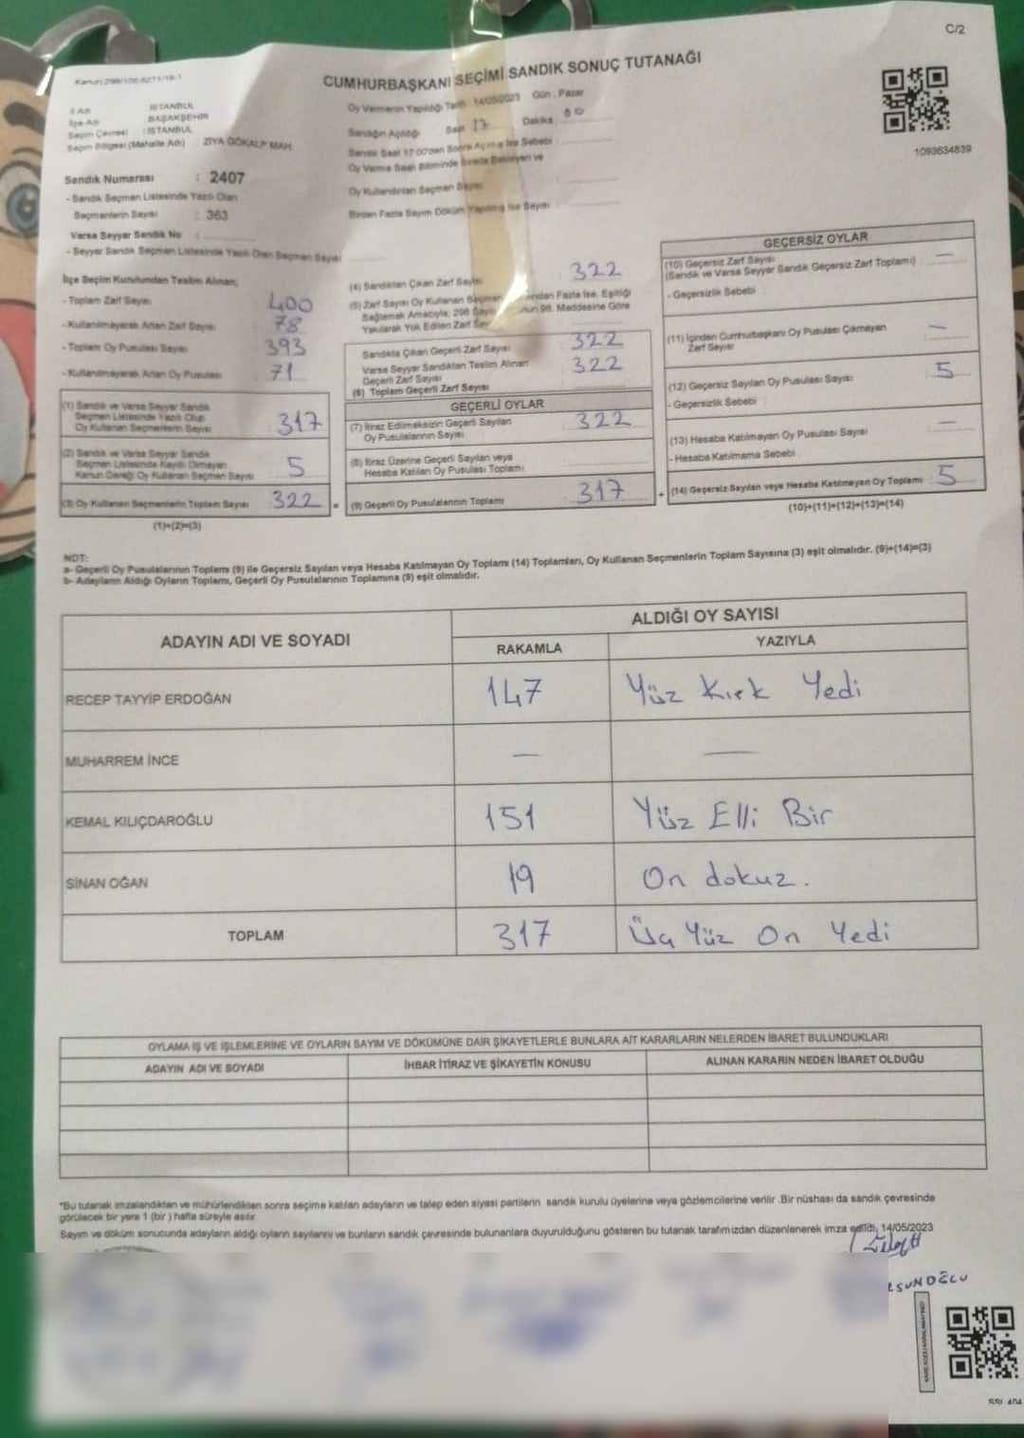 C/2
CUMHURBAŞKANI SEÇİMİ SANDIK SONUÇ TUTANAĞI
İl Adı İSTANBUL
İlçe Adı BAŞAKŞEHİR
Seçim Çevresi : İSTANBUL
Seçim Bölgesi (Mahalle Adı) ZİYA GÖKALP MAH.
Oy Vermenin Yapıldığı Tarih 14/05/2023 Gün . Pazar
Sandığın Açıldığı Saat 17 Dakika
1093634839
Sandık Numarası : 2407
- Sandık Seçmen Listesinde Yazılı Olan
Seçmenlerin Sayısı : 363
Varsa Seyyar Sandık No :
- Seyyar Sandık Seçmen Listesinde Yazılı Olan Seçmen Sayısı
Saat 17:00'den Sonra Açılma İse Sebebi
Oy Verme Saati Bitiminde Sırada Bekleyen ve
Oy Kullandırılan Seçmen Sayısı
Birden Fazla Sayım Döküm Yapılmış İse Sayısı
İlçe Seçim Kurulundan Teslim Alınan;
- Toplam Zarf Sayısı 400
- Kullanılmayarak Artan Zarf Sayısı 78
- Toplam Oy Pusulası Sayısı 393
- Kullanılmayarak Artan Oy Pusulası 71
(1) Sandık ve Varsa Seyyar Sandık
Seçmen Listesinde Yazılı Olup
Oy Kullanan Seçmenlerin Sayısı 317
(2) Sandık ve Varsa Seyyar Sandık
Seçmen Listesinde Kayıtlı Olmayan
Kanun Gereği Oy Kullanan Seçmen Sayısı 5
(3) Oy Kullanan Seçmenlerin Toplam Sayısı 322 =
(1)+(2)=(3)
(4) Sandıktan Çıkan Zarf Sayısı 322
(5) Zarf Sayısı Oy Kullanan Seçmen Fazla İse, Eşitliği
Sağlamak Amacıyla; 298 98. Maddesine Göre
Yakılarak Yok Edilen Zarf
Sandıkta Çıkan Geçerli Zarf Sayısı 322
Varsa Seyyar Sandıktan Teslim Alınan
Geçerli Zarf Sayısı 322
(6) Toplam Geçerli Zarf Sayısı
GEÇERLİ OYLAR
(7) İtiraz Edilmeksizin Geçerli Sayılan
Oy Pusulalarının Sayısı 322
(8) İtiraz Üzerine Geçerli Sayılan veya
Hesaba Katılan Oy Pusulası Toplamı
(9) Geçerli Oy Pusulalarının Toplamı 317 +
GEÇERSİZ OYLAR
(10) Geçersiz Zarf Sayısı —
(Sandık ve Varsa Seyyar Sandık Geçersiz Zarf Toplamı)
- Geçersizlik Sebebi
(11) İçinden Cumhurbaşkanı Oy Pusulası Çıkmayan
Zarf Sayısı —
(12) Geçersiz Sayılan Oy Pusulası Sayısı 5
- Geçersizlik Sebebi
(13) Hesaba Katılmayan Oy Pusulası Sayısı —
- Hesaba Katılmama Sebebi
(14) Geçersiz Sayılan veya Hesaba Katılmayan Oy Toplamı 5
(10)+(11)+(12)+(13)=(14)
NOT:
a- Geçerli Oy Pusulalarının Toplamı (9) ile Geçersiz Sayılan veya Hesaba Katılmayan Oy Toplamı (14) Toplamları, Oy Kullanan Seçmenlerin Toplam Sayısına (3) eşit olmalıdır. (9)+(14)=(3)
b- Adayların Aldığı Oyların Toplamı, Geçerli Oy Pusulalarının Toplamına (9) eşit olmalıdır.
ADAYIN ADI VE SOYADI ALDIĞI OY SAYISI
RAKAMLA YAZIYLA
RECEP TAYYİP ERDOĞAN 147 Yüz Kırk Yedi
MUHARREM İNCE — —
KEMAL KILIÇDAROĞLU 151 Yüz Elli Bir
SİNAN OĞAN 19 On dokuz.
TOPLAM 317 Üç Yüz On Yedi
OYLAMA İŞ VE İŞLEMLERİNE VE OYLARIN SAYIM VE DÖKÜMÜNE DAİR ŞİKAYETLERLE BUNLARA AİT KARARLARIN NELERDEN İBARET BULUNDUKLARI
ADAYIN ADI VE SOYADI İHBAR İTİRAZ VE ŞİKAYETİN KONUSU ALINAN KARARIN NEDEN İBARET OLDUĞU
*Bu tutanak imzalandıktan ve mühürlendikten sonra seçime katılan adayların ve talep eden siyasi partilerin sandık kurulu üyelerine veya gözlemcilerine verilir .Bir nüshası da sandık çevresinde
görülecek bir yere 1 (bir ) hafta süreyle asılır
Sayım ve döküm sonucunda adayların aldığı oyların sayılarını ve bunların sandık çevresinde bulunanlara duyurulduğunu gösteren bu tutanak tarafımızdan düzenlenerek imza edildi, 14/05/2023